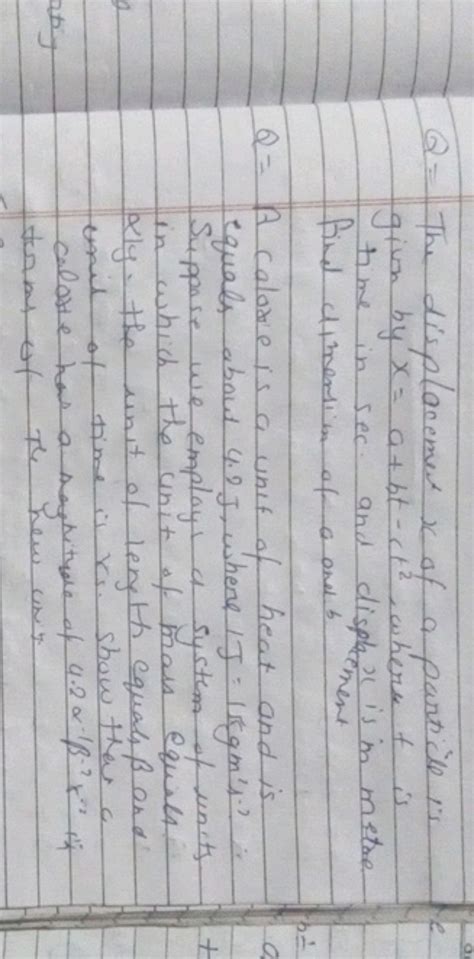 Q = The displacement x of a particle is
given by x = a + bt - ct², where t is
time in sec. and disp x is in metre
displacement
find dimension of a and b
Q = A calorie is a unit of heat and is
equals about 4.2 J, where 1 J = 1 kgm²s⁻²
Suppose we employ a system of units
in which the unit of mass equals
α kg, the unit of length equals β and
unit of time is γs. show that a
calorie has a magnitude of 4.2 α⁻¹ β⁻² γ² in
terms of the new unit